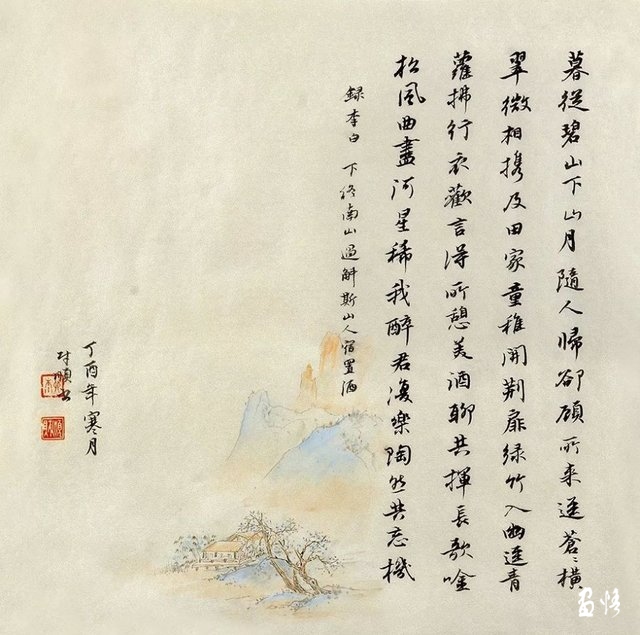 暮從碧山下山月隨人歸卻顧所來逕蒼〻橫
翠微相携及田家童稚開荆扉緑竹入幽逕青
蘿拂行衣歡言得所憩美酒聊共揮長歌唫
松風曲盡河星稀我醉君復樂陶然共忘機
録李白 下終南山過斛斯山人宿置酒
丁酉年寒月